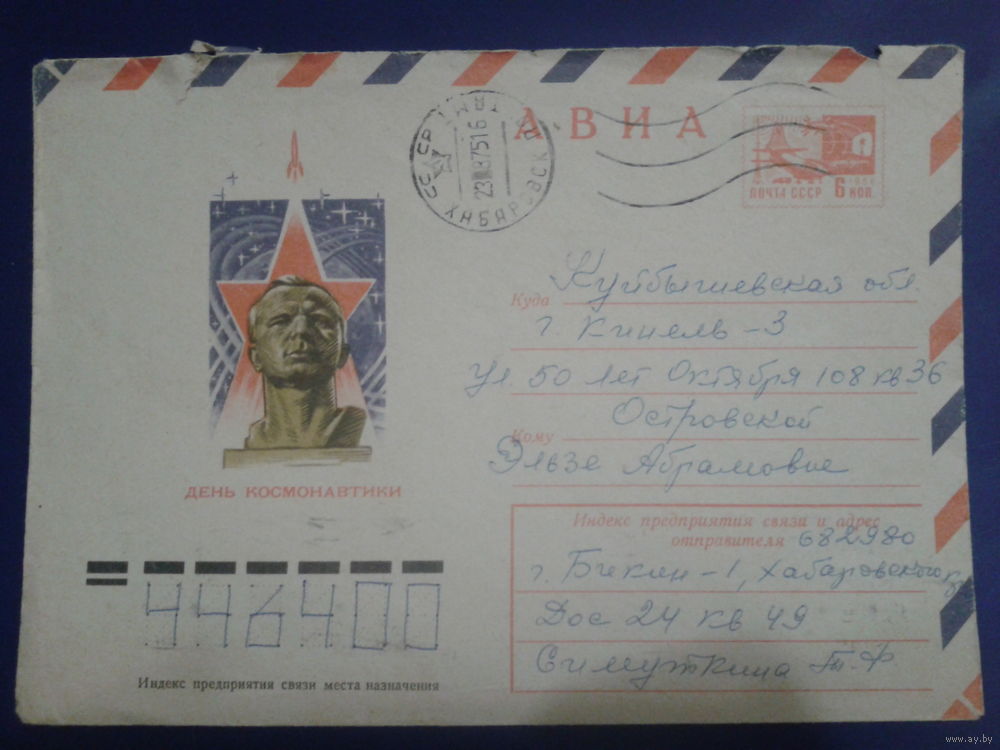 АВИА
СССР
ХАБАРОВСК
ПОЧТА СССР 6 КОП.
Куда Куйбышевская обл.
г. Кинель-3
Ул. 50 лет Октября 108 кв 36
Островской
Кому
Эльзе Абрамовне
ДЕНЬ КОСМОНАВТИКИ
Индекс предприятия связи и адрес
отправителя 682980
г. Бикин-1, Хабаровского
Дос 24 кв 49
Симуткина
446400
Индекс предприятия связи места назначения
www.ay.by